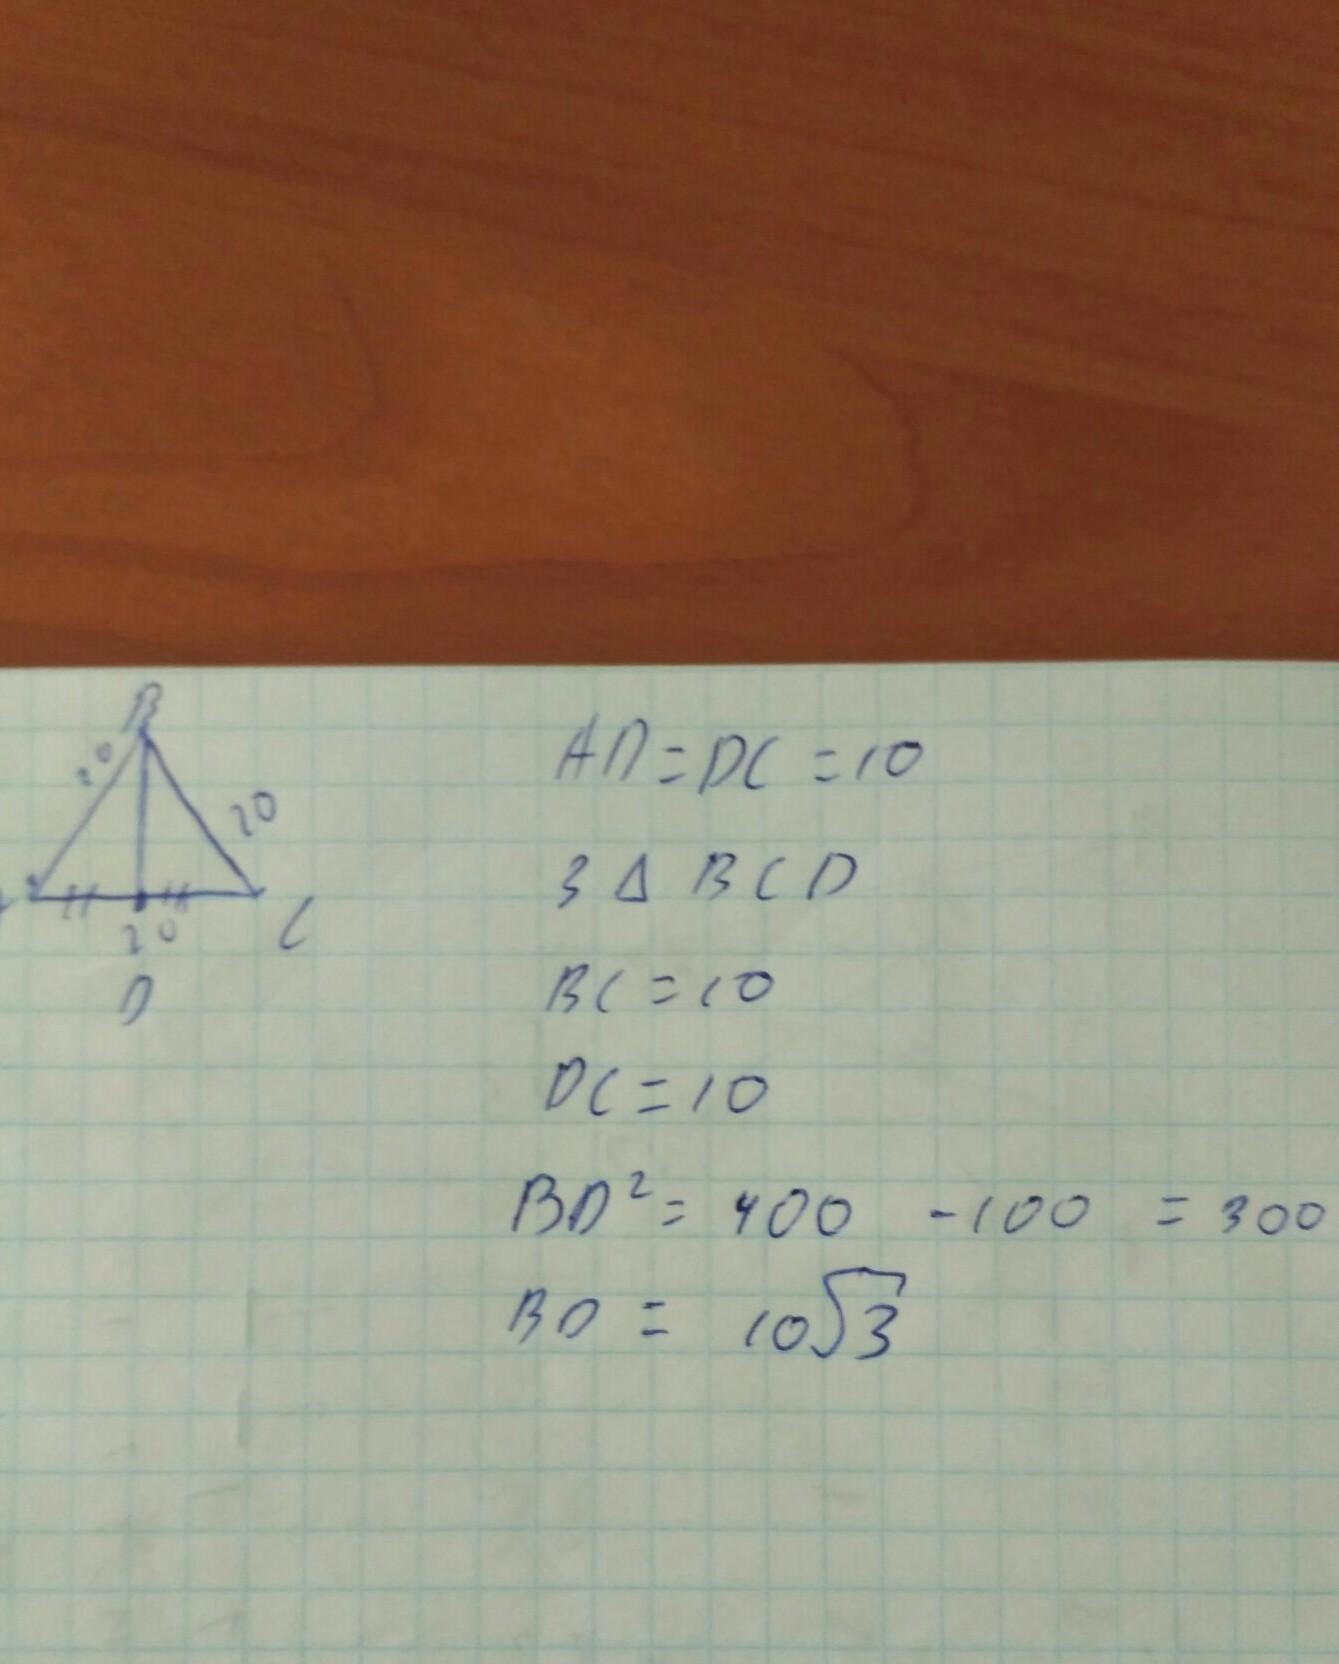 B
20
20
20
C
D
AD = DC = 10
З Δ BCD
BC = 10
DC = 10
BD² = 400 - 100 = 300
BD = 10√3